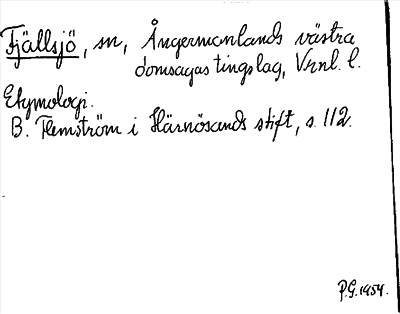 Fjällsjö, sn, Ångermanlands västra
domsagas tingslag, Vrnl. l.
Etymologi.
B. Flemström i Härnösands stift, s. 112.
P.G. 1954.